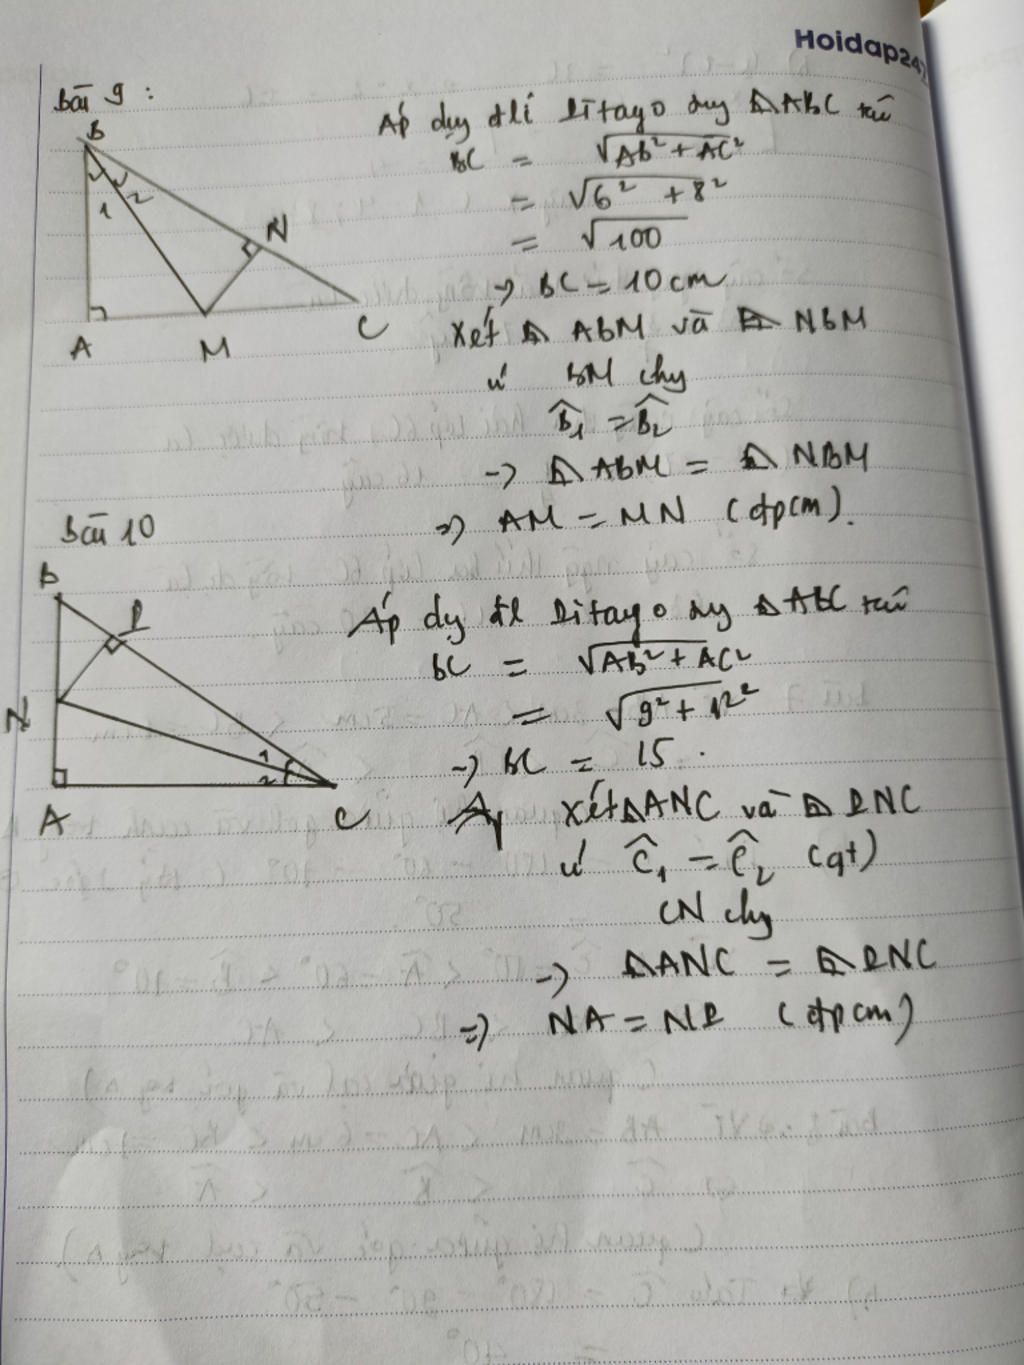 Hoidap247
bài 9 :
B
1
2
N
A
M
C
Áp dụg đlí Pitago trg ⊿ABC ta có
BC = √AB² + AC²
= √6² + 8²
= √100
→ BC = 10 cm
Xét ⊿ ABM và ⊿ NBM
có BM chg
B̂₁ = B̂₂
→ ⊿ ABM = ⊿ NBM
⇒ AM = MN (đpcm).
Bài 10
B
P
N
1
2
A
C
Áp dg đl Pitago trg ⊿ABC ta có
BC = √AB² + AC²
= √9² + 12²
→ BC = 15 .
Xét ⊿ANC và ⊿ PNC
có Ĉ₁ = Ĉ₂ (gt)
CN chg
→ ⊿ANC = ⊿PNC
⇒ NA = NP (đpcm)